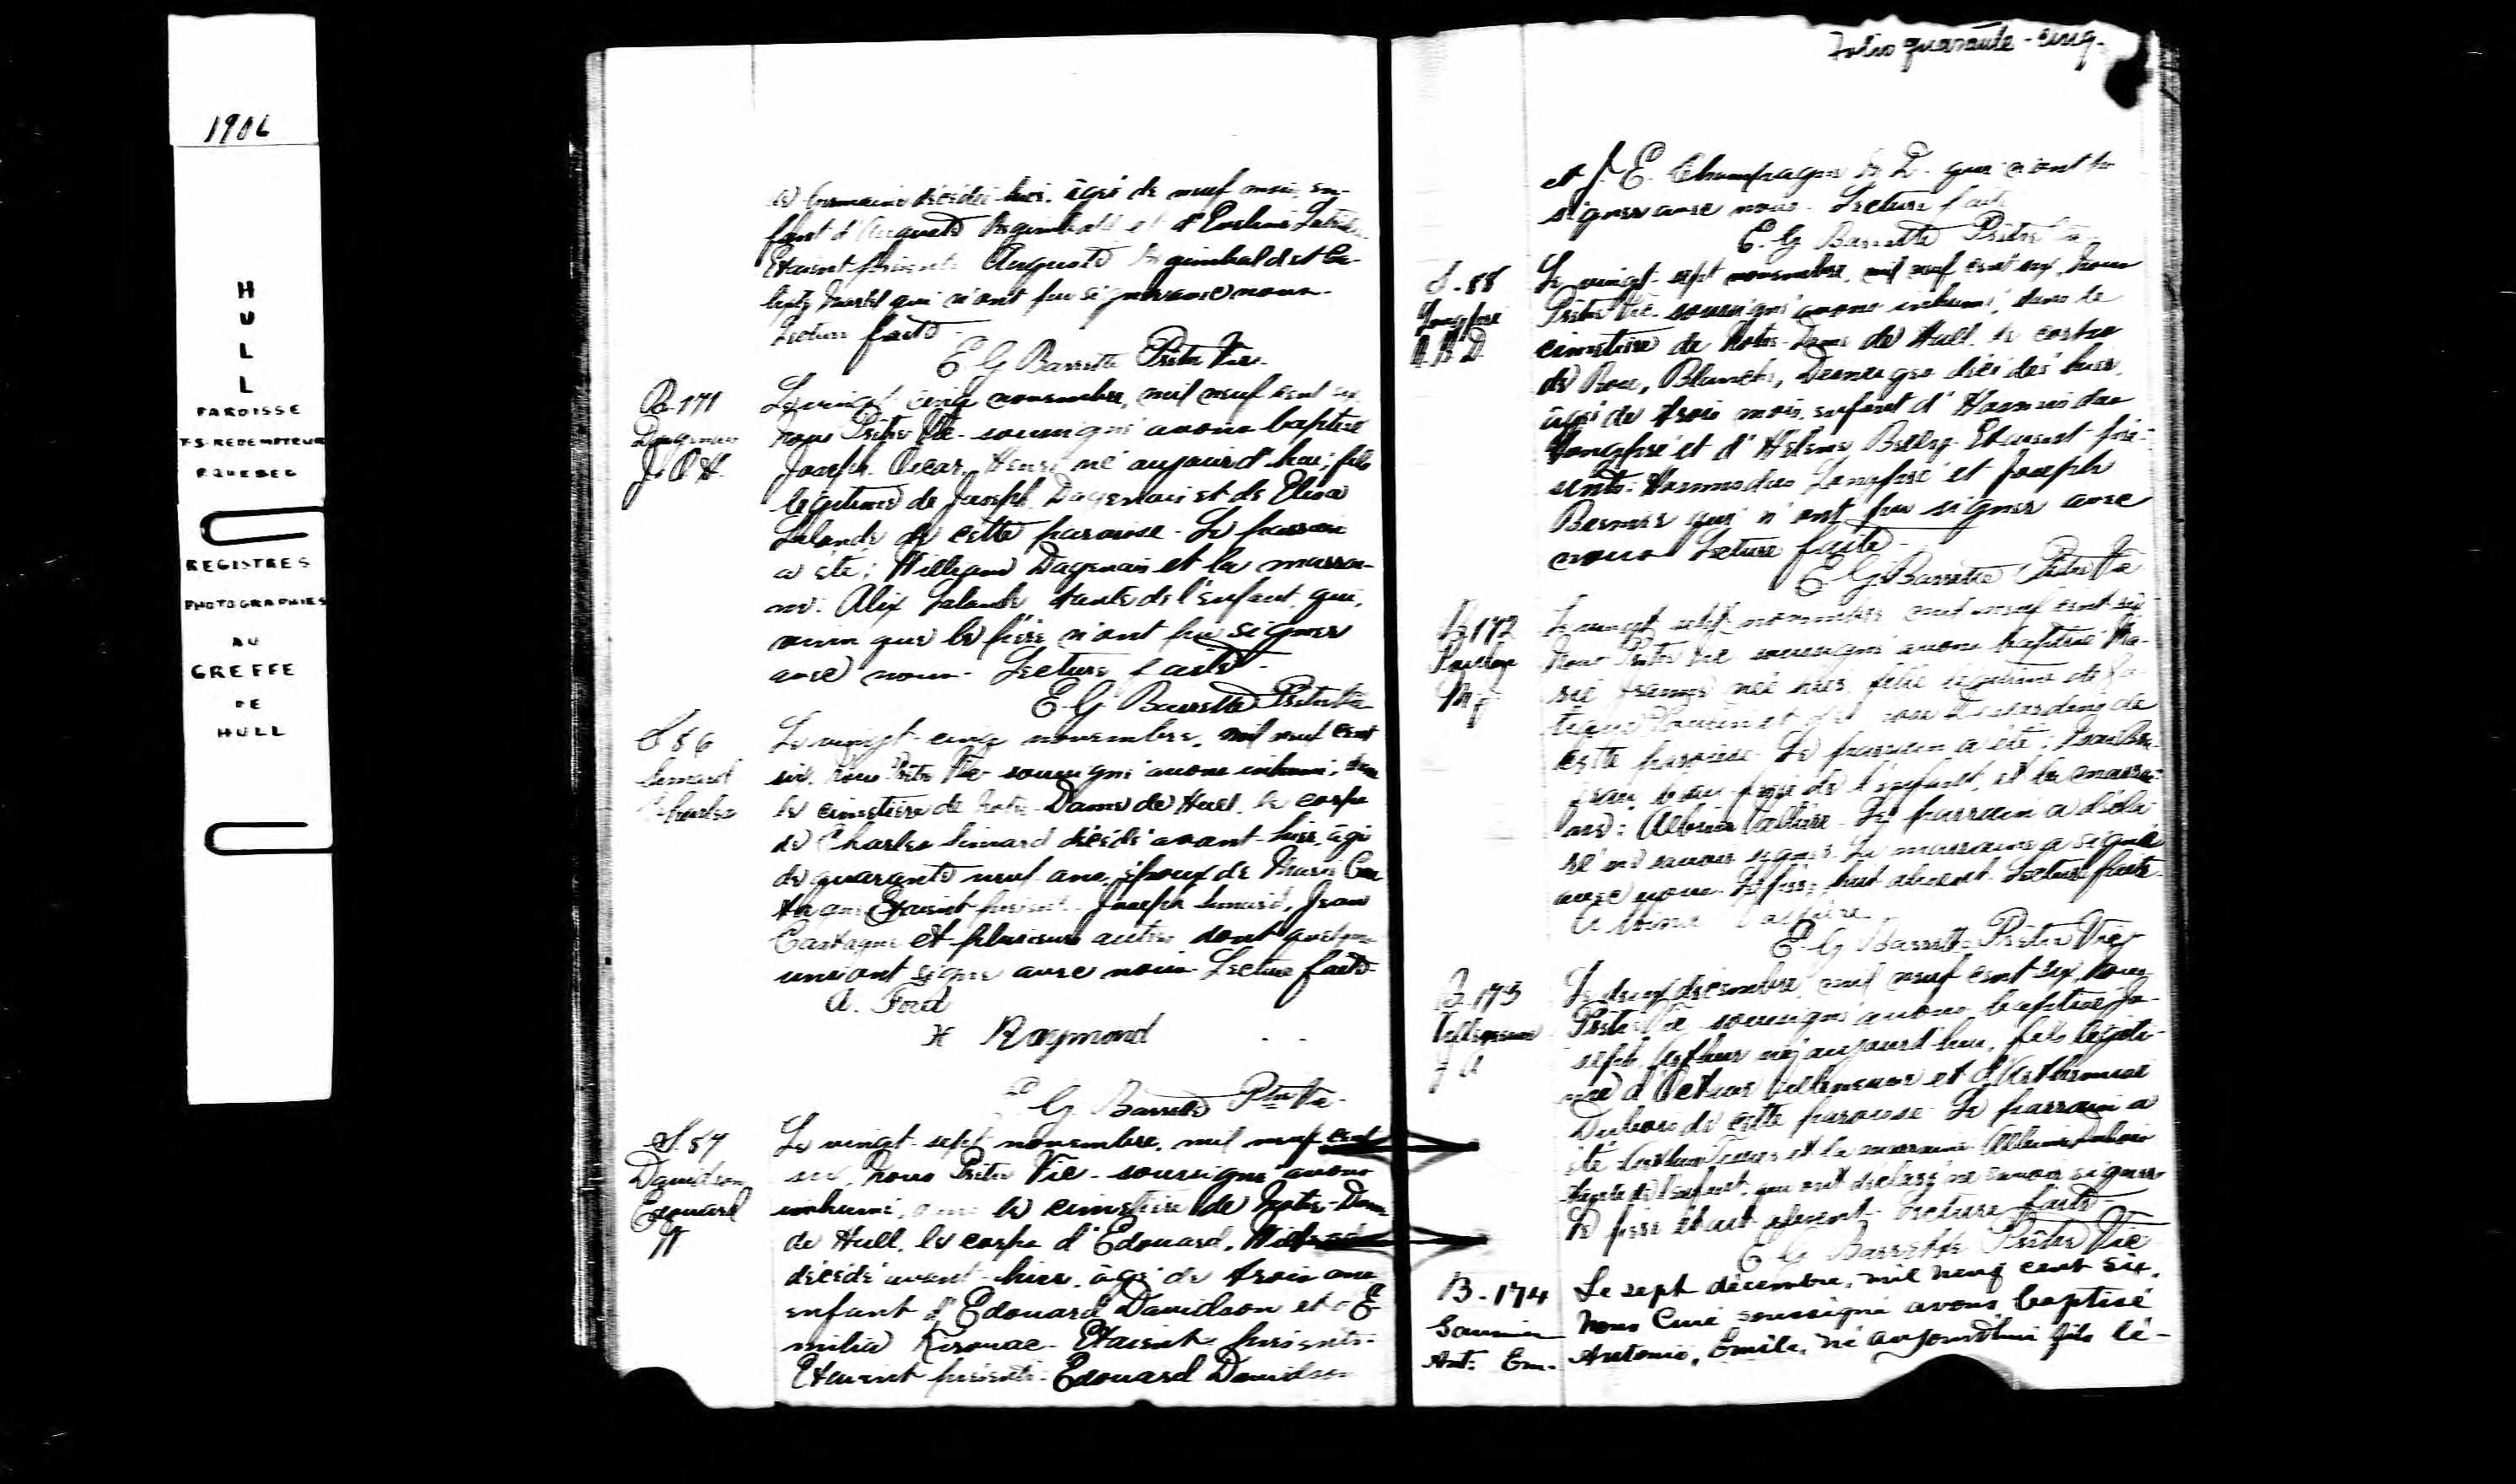 1906
H
U
L
L
PAROISSE
T-S. REDEMPTEUR
P. QUEBEC
REGISTRES
PHOTOGRAPHIES
AU
GREFFE
DE
HULL
décédée hier, âgée de neuf mois, en-
fant d'Auguste et d'
Etaient présents Auguste et
qui n'ont pu signer avec nous.
Lecture faite
E. G Barrette Prêtre Vic.
B-171
Dagenais
J. O. H.
Le vingt cinq novembre, mil neuf cent six
nous Prêtre Vic- soussigné avons baptisé
Joseph, Oscar, Henri, né aujourd'hui, fils
légitime de Joseph Dagenais et de Eliza
Lalonde de cette paroisse - Le parrain
a été; William Dagenais et la marrai-
ne: Alix Lalonde, tante de l'enfant, qui,
ainsi que le père n'ont pu signer
avec nous- Lecture faite-
E. G. Barrette Prêtre Vic
S 86
Simard
Charles
Le vingt-cinq novembre, mil neuf cent
six, nous Prêtre Vic- soussigné avons inhumé, dans
le cimetière de Notre-Dame de Hull, le corps
de Charles Simard décédé avant-hier, âgé
de quarante neuf ans, époux de Marie Cas-
tagne Etaient présents Joseph Simard, Jean
Castagne et plusieurs autres dont quelques
uns ont signé avec nous- Lecture faite-
A. Ford
H Raymond
E G Barrette Ptre Vic-
S. 87
Davidson
Edouard
W
Le vingt-sept novembre, mil neuf cent
six, nous Prêtre Vic- soussigné avons
inhumé, dans le cimetière de Notre-Dame
de Hull, le corps d'Edouard, Wilfrid
décédé avant-hier, âgé de trois ans
enfant d'Edouard Davidson et d'E-
milia Kirouac- Etaient présents-
Etaient présents- Edouard Davidson
Folio quarante-cinq.
et J. E. Champagne qui n'ont pu
signer avec nous- Lecture faite
E. G Barrette Prêtre Vic
S-88
Longpré
Le vingt-sept novembre, mil neuf cent six, nous
Prêtre Vic- soussigné avons inhumé, dans le
cimetière de Notre-Dame de Hull, le corps
de Rose, Blanche, décédée hier,
âgée de trois mois, enfant d'Hormisdas
Longpré et d'Hélène Etaient pré-
sents: Hormisdas Longpré et Joseph
Bernier qui n'ont pu signer avec
nous Lecture faite-
E. G. Barrette Prêtre Vic
B 172
Le vingt sept novembre mil neuf cent six
nous Prêtre Vic soussigné avons baptisé Ma-
rie née hier, fille légitime de
et de
cette paroisse- Le parrain a été:
de l'enfant, et la marrai-
ne: Albina Vallière- Le parrain a décla-
ré ne savoir signer. La marraine a signé
avec nous. Le père était absent. Lecture faite.
Albina Vallière
E. G Barrette Prêtre Vic
B-173
Villeneuve
J A
Le deux décembre, mil neuf cent six, nous
Prêtre Vic soussigné avons baptisé Jo-
seph Arthur né aujourd'hui, fils légiti-
me d' Villeneuve et d'
Dubois de cette paroisse- Le parrain a
été et la marraine Dubois
tante de l'enfant, qui ont déclaré ne savoir signer
Le père était absent- Lecture faite-
E G Barrette Prêtre Vic
B-174
Ant. Em.
Le sept décembre, mil neuf cent six,
Nous Curé soussigné avons baptisé
Antonio, Emile, né aujourd'hui fils lé-